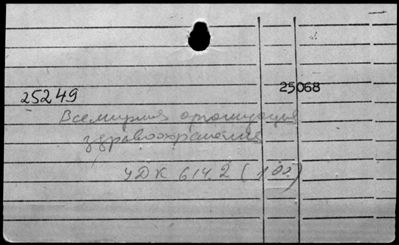 25068
25249
Всемирная организация
здравоохранения
УДК 614.2 (100)